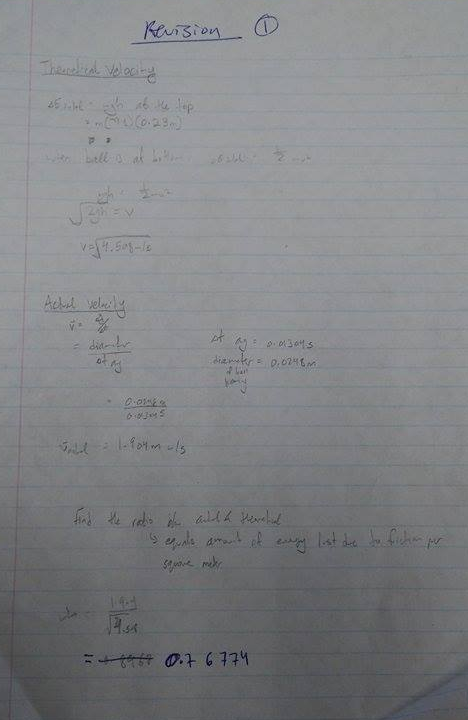 Revision 1
Theoretical Velocity
mgh at the top
= m(9.8)(0.23m)
when ball is at bottom, = 1/2 mv²
mgh = 1/2 mv²
√2gh = v
v = √4.508 m/s
Actual velocity
v =
= diameter / Δt avg
Δt avg = 0.01304s
diameter = 0.0248m
of ball
= 0.0248m / 0.0130s
= 1.904 m/s
Find the ratio of actual & theoretical
↳ equals amount of energy lost due to friction per
square meter
= 1.904 / √4.508
= 0.76774